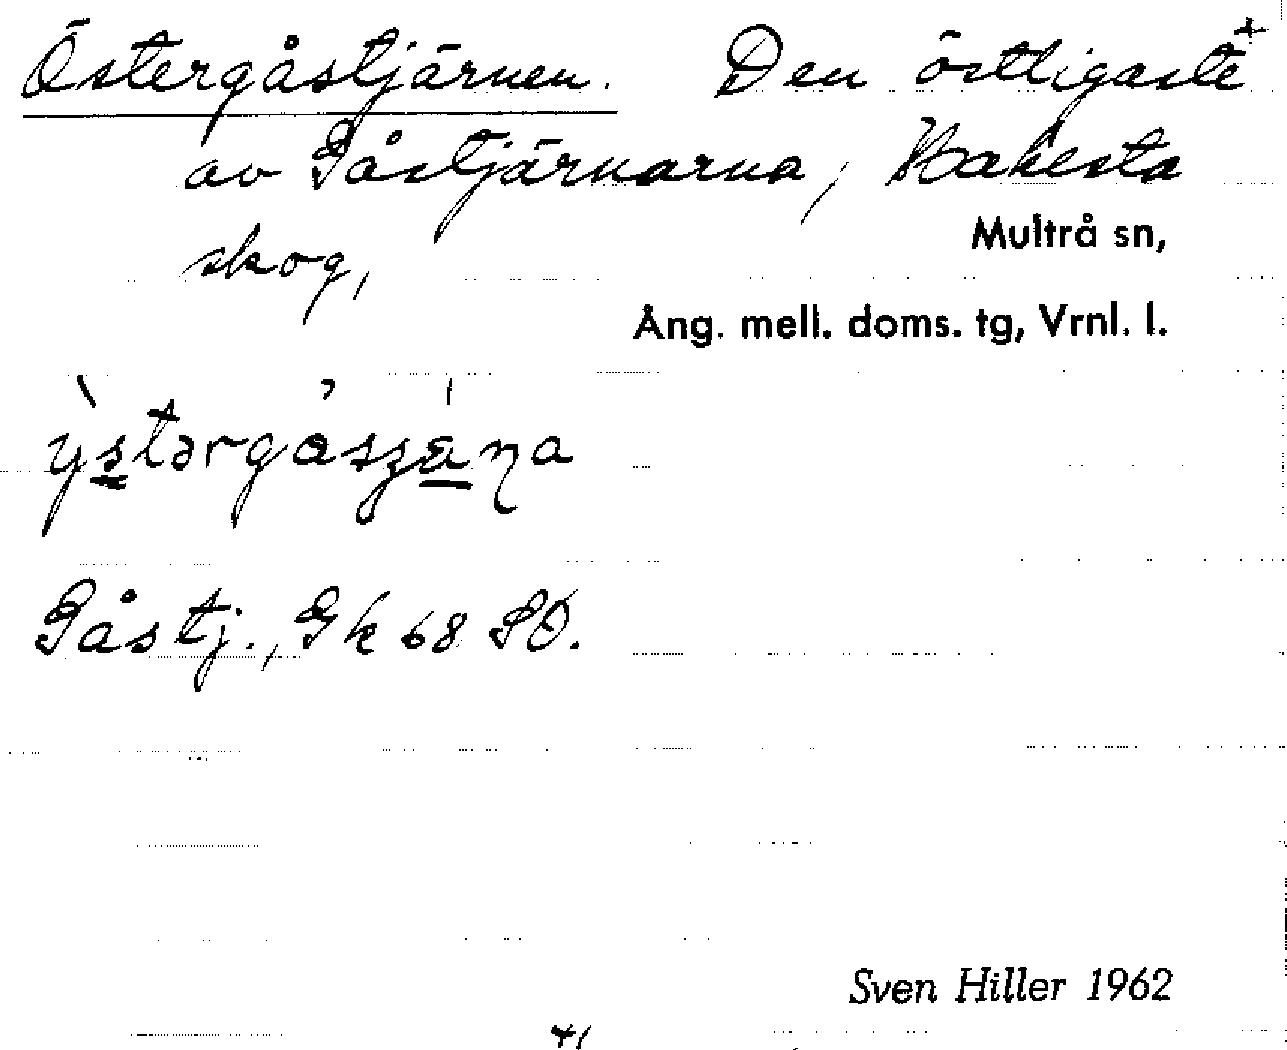 Östergåstjärnen. Den östligaste+
av Gåstjärnarna, Hakesta
skog,
Multrå sn,
Ång. mell. doms. tg, Vrnl. l.
Gåstj., Gk 68 SO.
Sven Hiller 1962
41